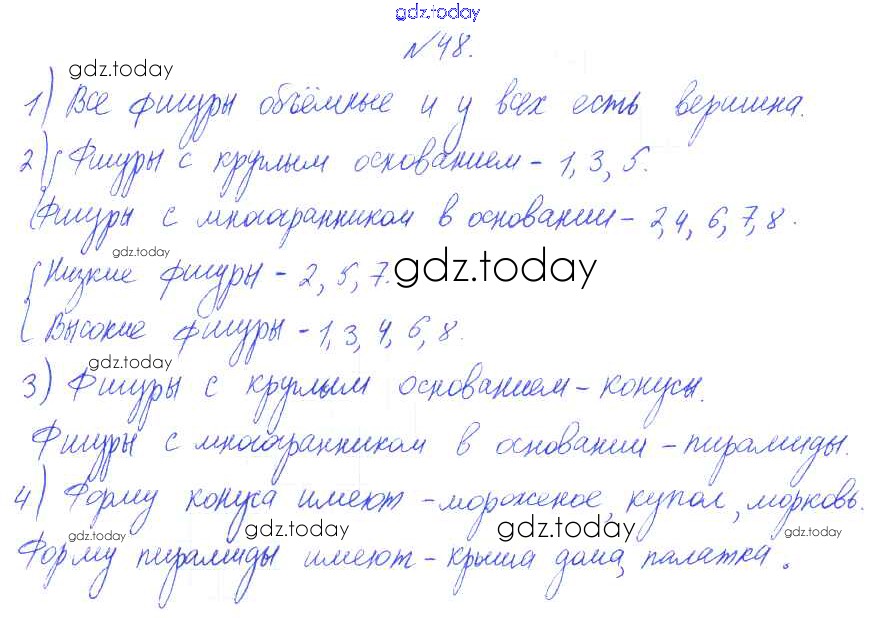 gdz.today
№48.
gdz.today
1) Все фигуры объёмные и у всех есть вершина.
2) { Фигуры с круглым основанием - 1, 3, 5.
Фигуры с многогранником в основании - 2, 4, 6, 7, 8.
gdz.today
{ Низкие фигуры - 2, 5, 7. gdz.today
Высокие фигуры - 1, 3, 4, 6, 8.
gdz.today
3) Фигуры с круглым основанием - конусы.
Фигуры с многогранником в основании - пирамиды.
4) Форму конуса имеют - мороженое, купол, морковь.
gdz.today gdz.today gdz.today gdz.today
Форму пирамиды имеют - крыша дома, палатка.